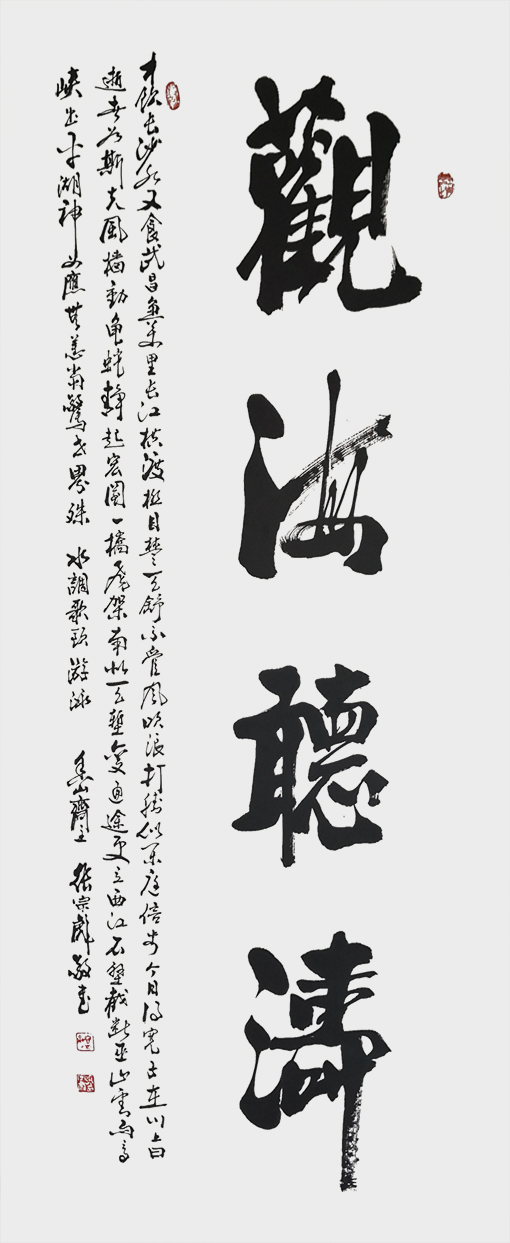 觀海聽濤
才飲长沙水又食武昌魚万里长江横渡極目楚天舒不管風吹浪打勝似闲庭信步今日得寬子在川上曰
逝者如斯夫風檣動龟蛇靜起宏圖一橋飛架南北天塹變通途更立西江石壁截斷巫山雲雨高
峽出平湖神女應無恙當驚世界殊 水調歌頭 游泳 香山齋主 張宗彪敬書